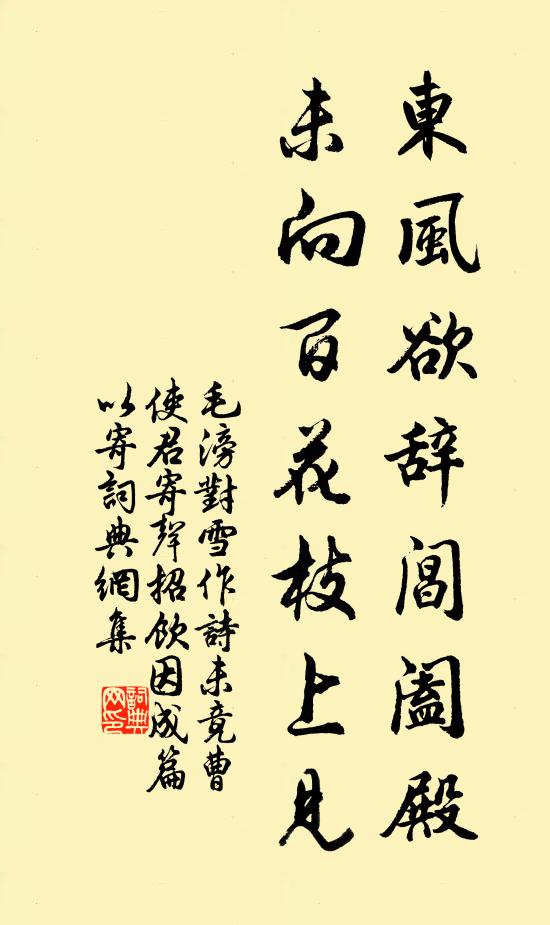 東風欲辞閶闔殿
未向百花枝上見
毛滂對雪作詩未竟曹
使君寄聲招飲因成篇
以寄詞典網集
詞典
网印